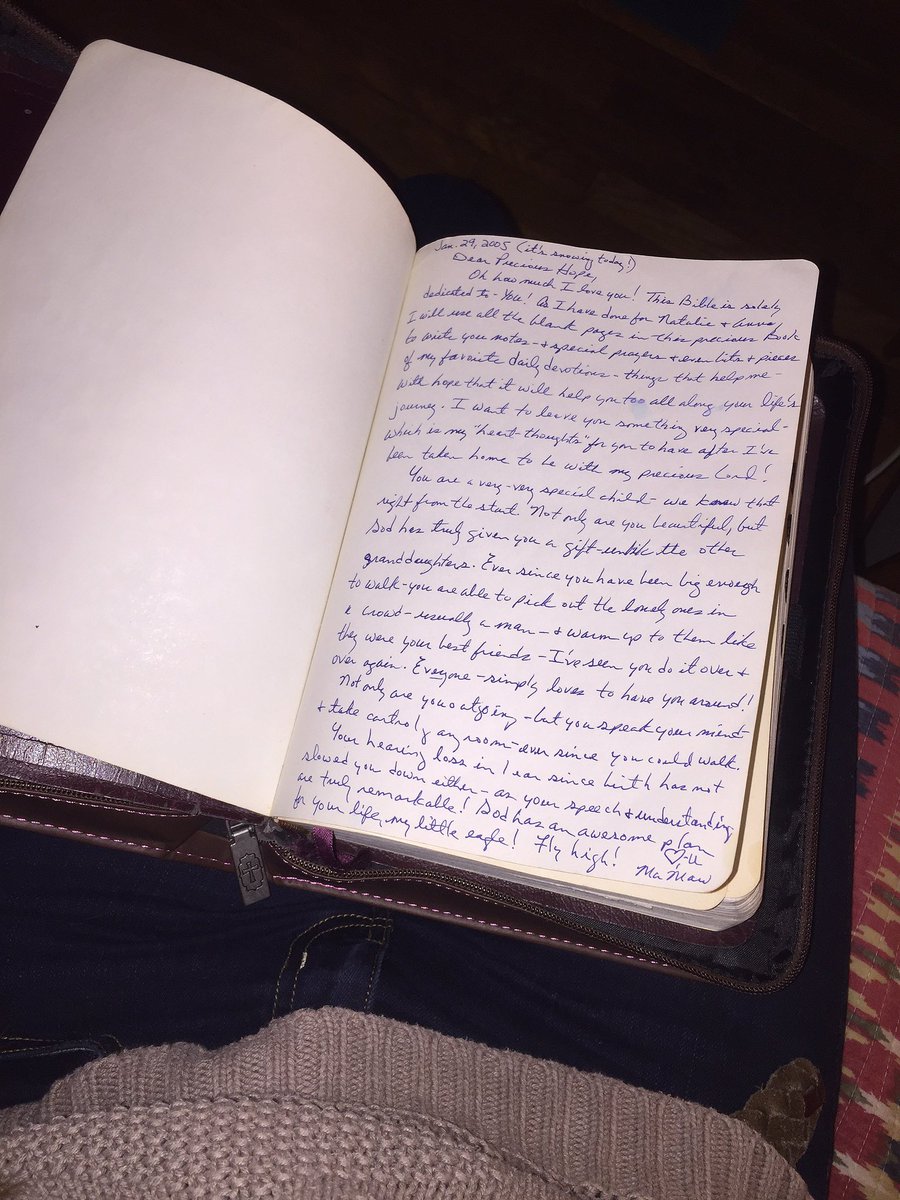 Jan. 29, 2005 (it's snowing today!)
Dear Precious Hope,
Oh how much I love you! This Bible is solely
dedicated to - You! As I have done for Natalie & Anna
I will use all the blank pages in this precious Book
to write you notes - & special prayers & even bits & pieces
of my favorite daily devotions - things that help me -
with hope that it will help you too all along your life's
journey. I want to leave you something very special -
which is my "heart-thoughts" for you to have after I've
been taken home to be with my precious Lord!
You are a very - very special child - we knew that
right from the start. Not only are you beautiful, but
God has truly given you a gift - unlike the other
granddaughters. Ever since you have been big enough
to walk - you are able to pick out the lonely ones in
a crowd - usually a man - & warm up to them like
they were your best friends - I've seen you do it over &
over again. Everyone - simply loves to have you around!
Not only are you outgoing - but you speak your mind -
& take control of any room - ever since you could walk.
Your hearing loss in 1 ear since birth has not
slowed you down either - as your speech & understanding
are truly remarkable! God has an awesome plan
for your life, my little eagle! Fly high! ♡-U
Ma Maw